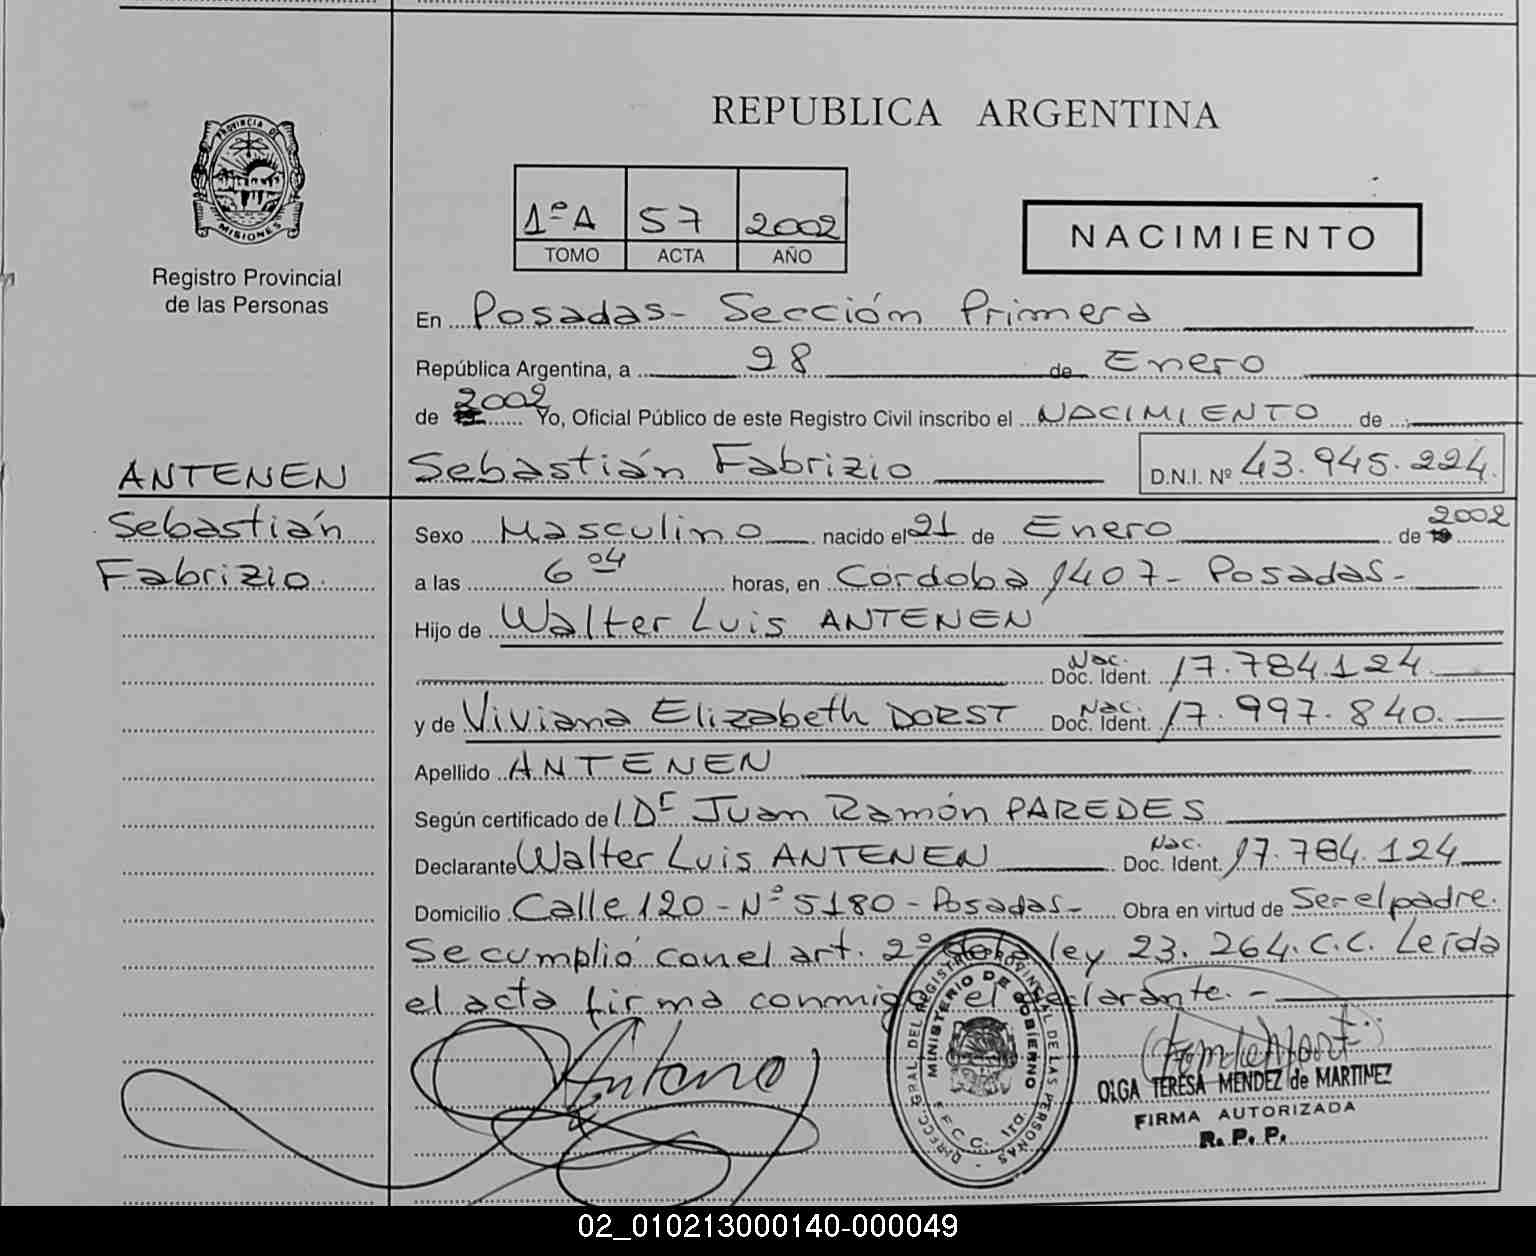 REPUBLICA ARGENTINA
PROVINCIA DE
MISIONES
Registro Provincial
de las Personas
1º A 57 2002
TOMO ACTA AÑO
NACIMIENTO
En Posadas - Sección Primera
República Argentina, a 28 de Enero
de 2002 Yo, Oficial Público de este Registro Civil inscribo el NACIMIENTO de
Sebastián Fabrizio D.N.I. Nº 43.945.224.
ANTENEN
Sebastián
Fabrizio.
Sexo Masculino nacido el 21 de Enero de 2002
a las 6 04 horas, en Córdoba 1407- Posadas-
Hijo de Walter Luis ANTENEN
Nac.
Doc. Ident. 17.784.124.
y de Viviana Elizabeth DORST Nac. Doc. Ident. 17.997.840.
Apellido ANTENEN
Según certificado de Dr Juan Ramón PAREDES
Declarante Walter Luis ANTENEN Nac. Doc. Ident. 17.784.124
Domicilio Calle 120 - Nº 5180 - Posadas- Obra en virtud de Ser el padre.
Se cumplió con el art. 2º de la ley 23.264. C.C. Leída
el acta firma conmigo el declarante. -
DIRECC. GRAL. DEL REGISTRO PROVINCIAL DE LAS PERSONAS
MINISTERIO DE GOBIERNO
OLGA TERESA MENDEZ de MARTINEZ
FIRMA AUTORIZADA
R. P. P.
02_010213000140-000049